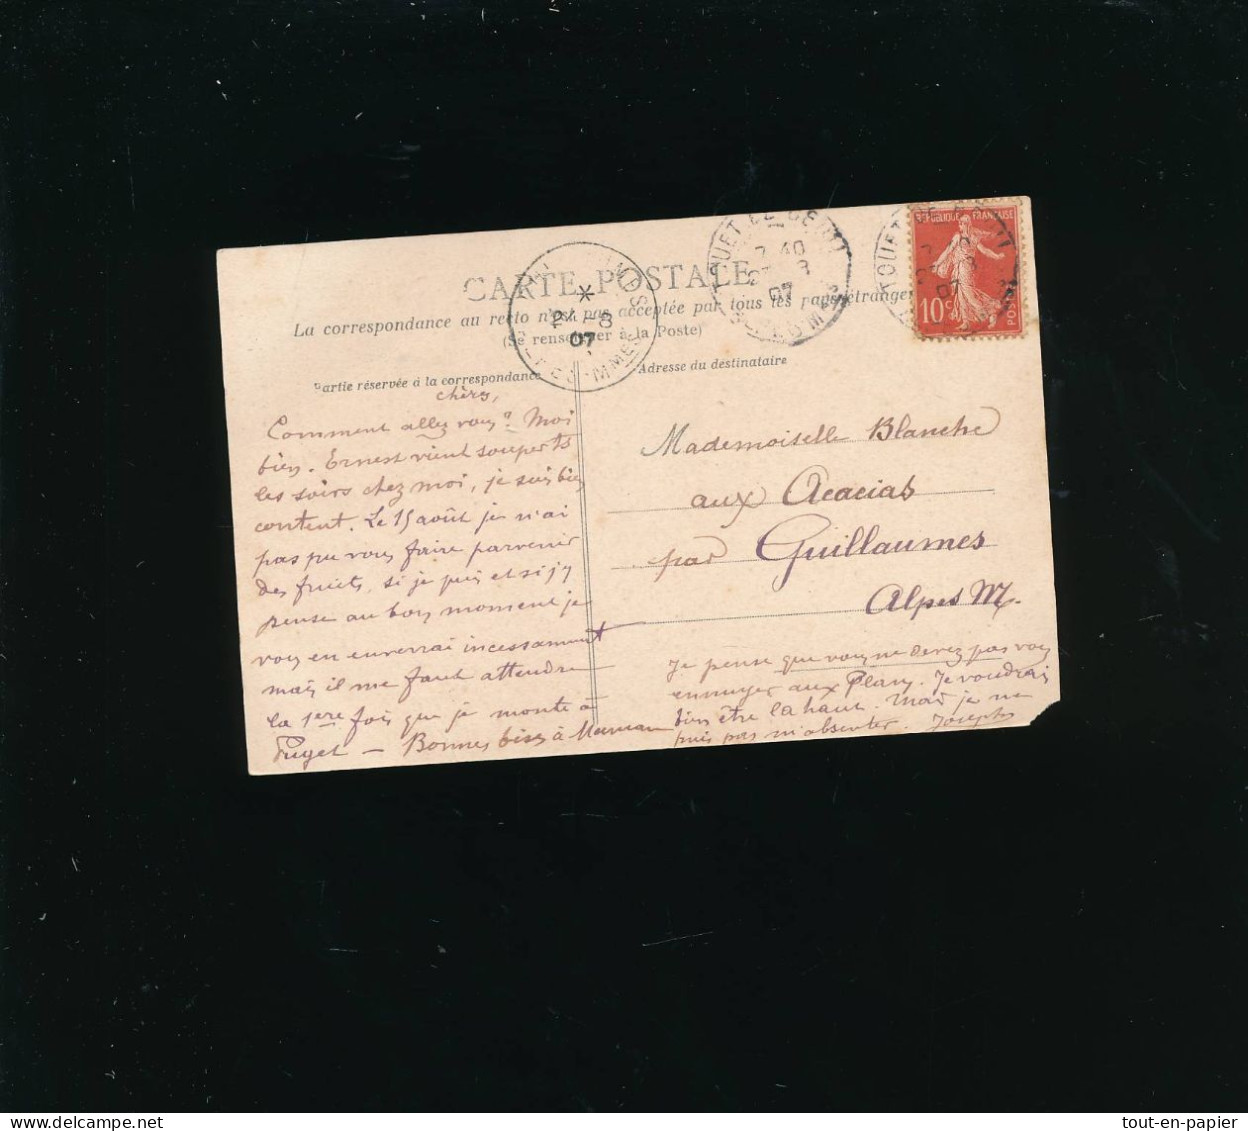 CARTE POSTALE
La correspondance au recto n'est pas acceptée par tous les pays étrangers
(Se renseigner à la Poste)
Partie réservée à la correspondance
Adresse du destinataire
RÉPUBLIQUE FRANÇAISE
10c
POSTES
TOUET DE BEUIL
ALPES MMES
2 40
07
24 -8
07
chers,
Comment allez vous? Moi
bien. Ernest vient souper ts
les soirs chez moi, je suis bien
content. Le 15 août je n'ai
pas pu vous faire parvenir
des fruits, si je puis et si j'y
pense au bon moment je
vous en enverrai incessamment
mais il me faut attendre
la 1ere fois que je monte à
Puget — Bonnes bises à Maman
Mademoiselle Blanche
aux Acacias
par Guillaumes
Alpes M.
Je pense que vous ne devez pas vous
ennuyer aux Plans. Je voudrais
bien être là haut. Mais je ne
puis pas m'absenter. Joseph
tout-en-papier